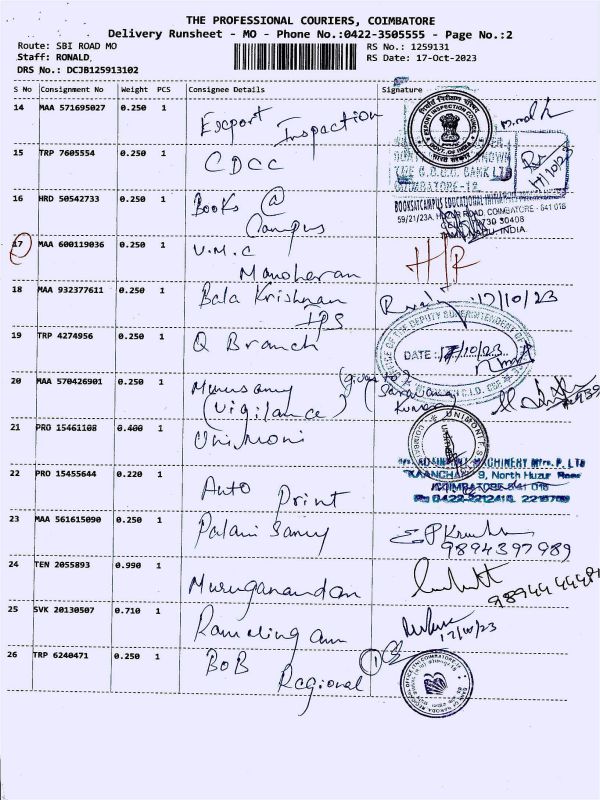 THE PROFESSIONAL COURIERS, COIMBATORE
Delivery Runsheet - MO - Phone No.:0422-3505555 - Page No.:2
Route: SBI ROAD MO
RS No.: 1259131
Staff: RONALD,
RS Date: 17-Oct-2023
DRS No.: DCJB125913102
S No Consignment No Weight PCS Consignee Details Signature
14 MAA 571695027 0.250 1 Export Inspaction
15 TRP 7605554 0.250 1 CDCC
THE C.D.C.C. BANK LTD
COIMBATORE-12.
17/10/23
16 HRD 50542733 0.250 1 Books @ Campus
BOOKSATCAMPUS EDUCATIONAL
59/21/23A, HUZUR ROAD, COIMBATORE - 641 018
TAMILNADU, INDIA.
17 MAA 600119036 0.250 1 V.M.C Manoheran H/R
18 MAA 932377611 0.250 1 Bala Krishnan IPS 17/10/23
19 TRP 4274956 0.250 1 Q Branch
OFFICE OF THE DEPUTY SUPERINTENDENT OF
DATE: 17/10/23
20 MAA 570426901 0.250 1 Munusamy (Vigilance) (given to) (Saravana Kumar)
21 PRO 15461108 0.400 1 Unimoni
UNIMONI
22 PRO 15455644 0.220 1 Auto Print
MACHINERY Mfrs. P. LTD
"KAANCHAN" 9, North Huzur Road
COIMBATORE-641 018
Ph: 0422-2212418,
23 MAA 561615090 0.250 1 Palani Samy
9894397989
24 TEN 2055893 0.990 1 Muruganandan
25 SVK 20130507 0.710 1 Ramalingam
17/10/23
26 TRP 6240471 0.250 1 BoB Regional